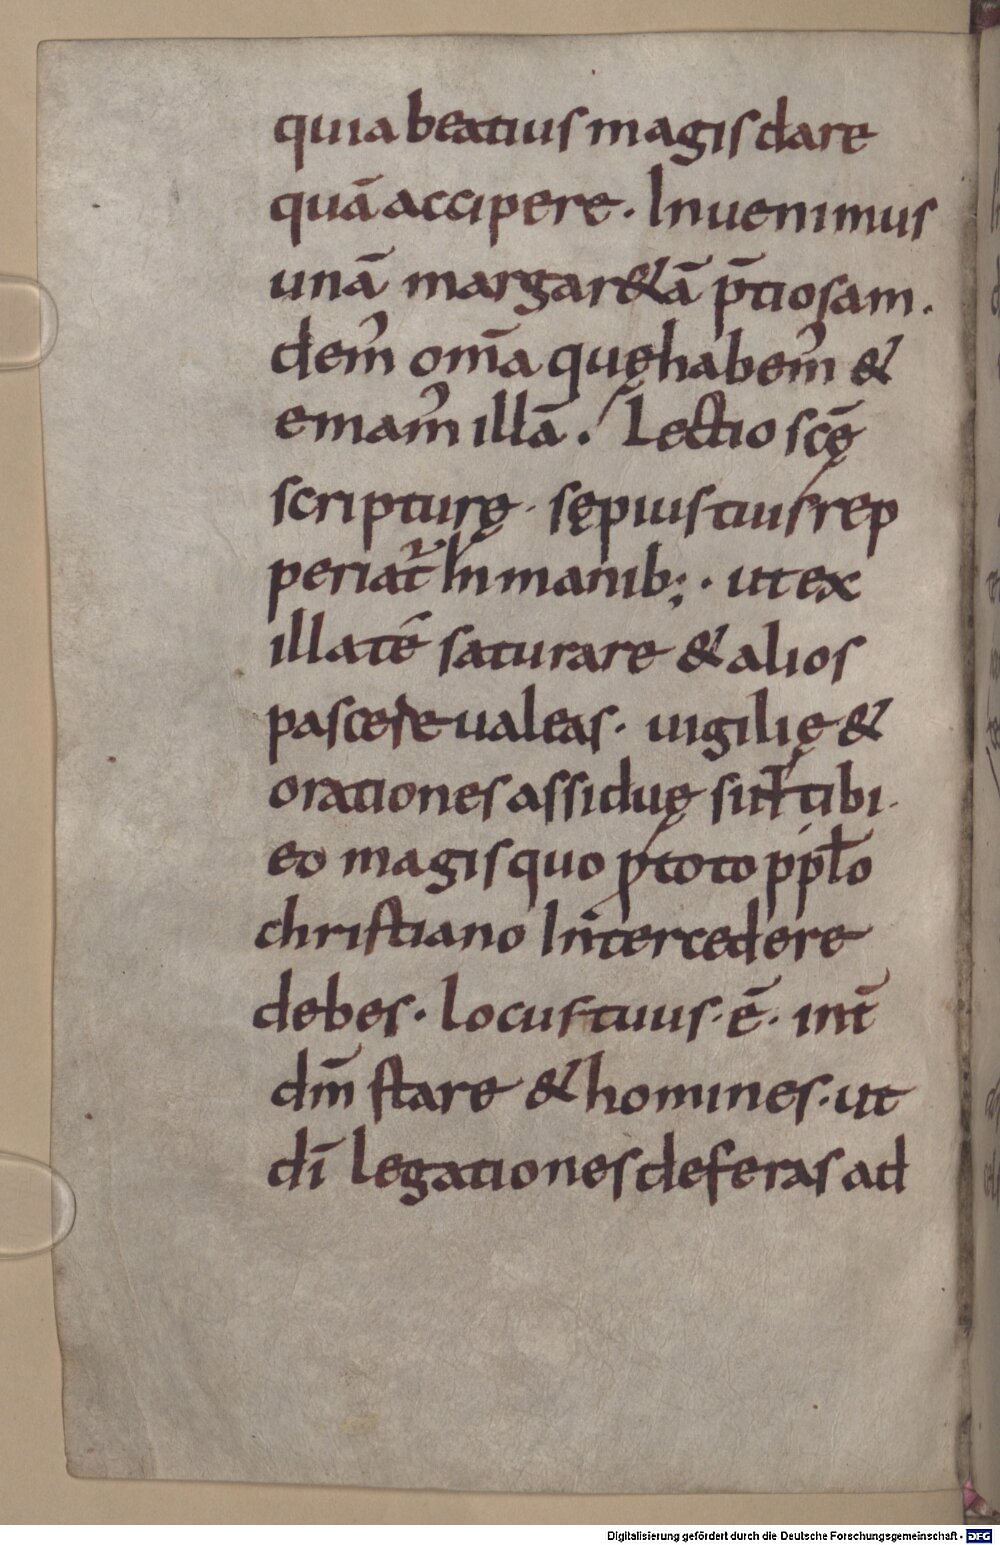 quia beatius magis dare
quā accipere. Inuenimus
unā margar&ā p̄tiosam.
dem᾽ om̄a quę habem᾽ &
emam᾽ illā. Lectio scę̄
scripturę · sępius tuis rep
periat᷑ In manib; · ut ex
illa te saturare & alios
pascere ualeas · uigilię &
orationes assiduę sint tibi ·
eo magis quo p̱ toto ppło
christiano Intercedere
debes · Locus tuus · ē · int̄
dm̄ stare & homines · ut
dī legationes deferas ad
Digitalisierung gefördert durch die Deutsche Forschungsgemeinschaft - DFG